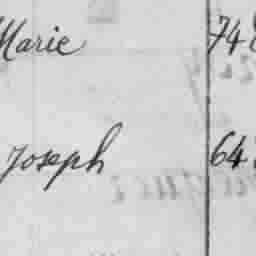 Marie 74
Joseph 64